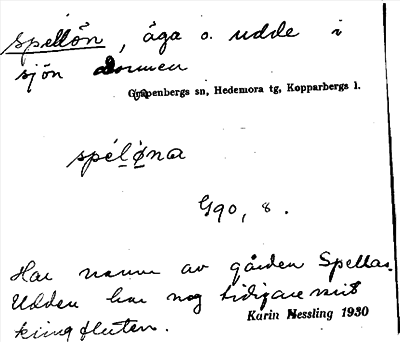 Spellön, äga o. udde i
sjön Dormen
Gr̶ngpenbergs sn, Hedemora tg, Kopparbergs l.
spéløna
G90, 8.
Har namn av gården Spellas.
Udden har nog tidigare varit
kringfluten.
Karin Hessling 1930